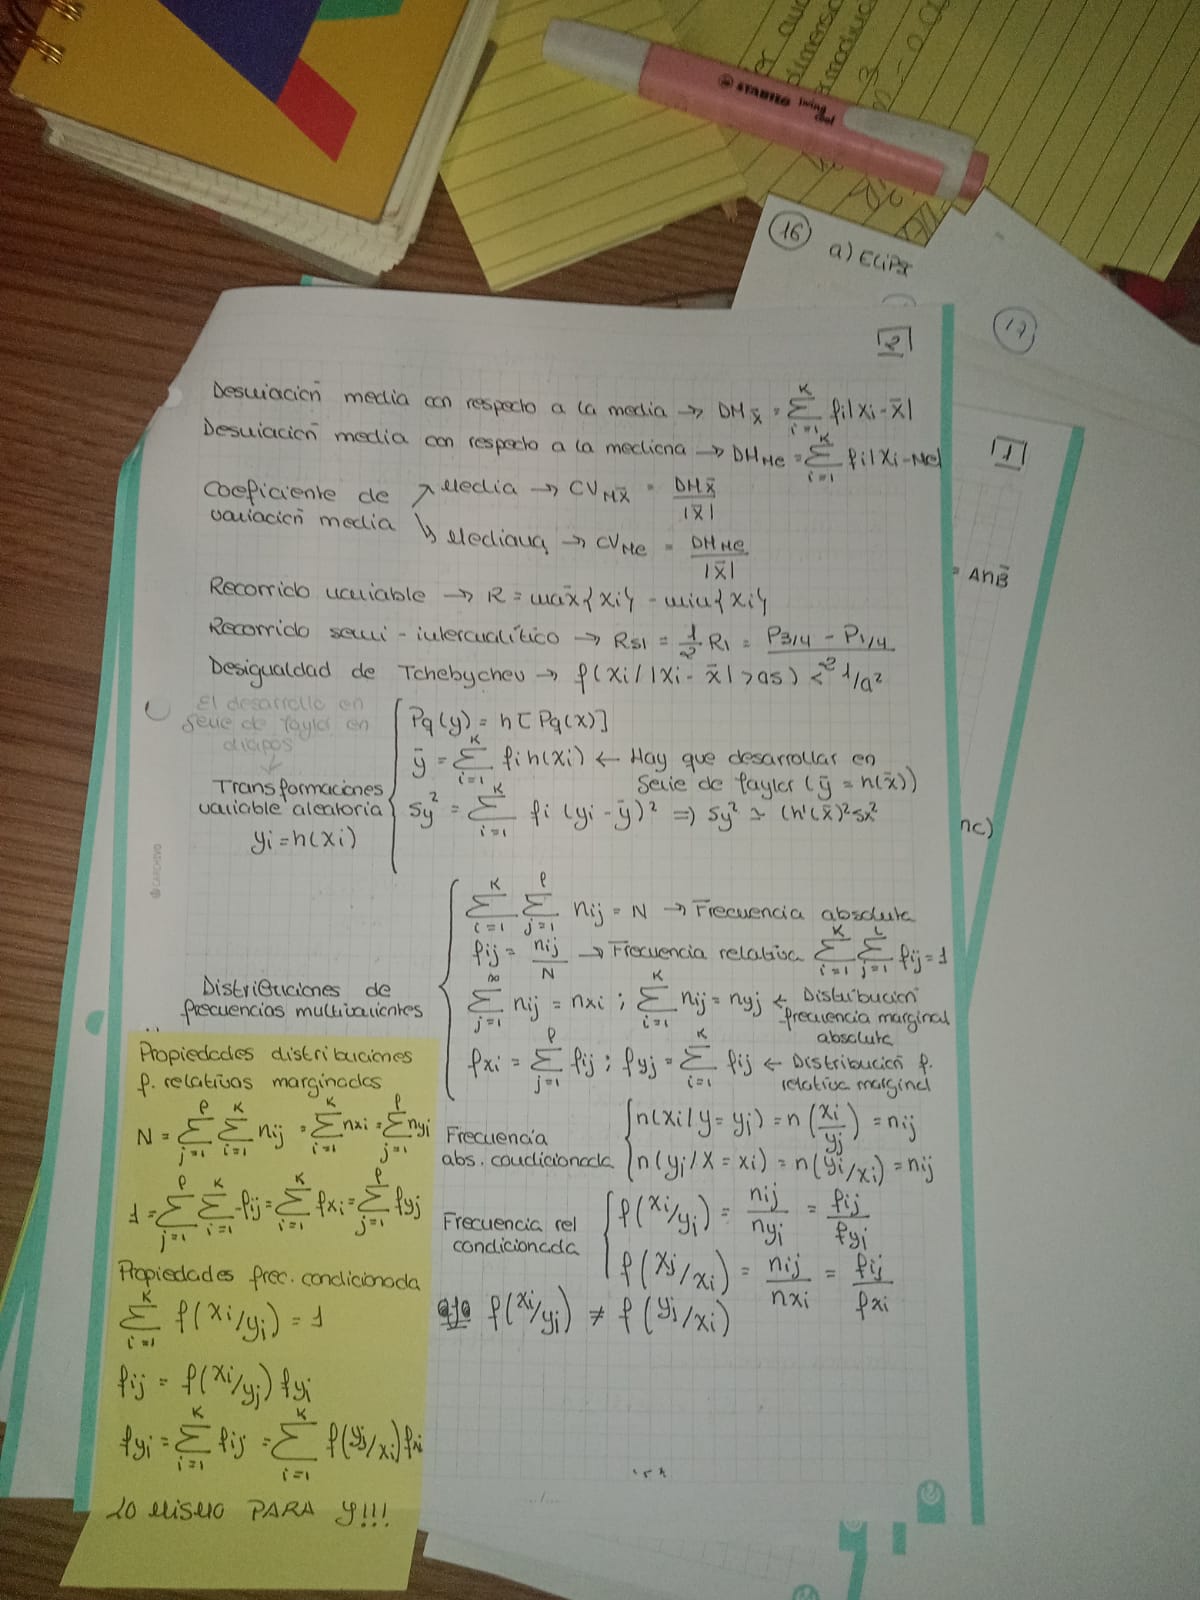 STABILO swing cool
16
a) Elips
17
2
1
Desviación media con respecto a la media → DM x̄ = Σ(i=1, K) fi|xi - x̄|
Desviación media con respecto a la mediana → DM Me = Σ(i=1, K) fi|xi - Me|
Coeficiente de variación media
↗ Media → CV Mx̄ = DM x̄ / |x̄|
↘ Mediana → CV Me = DM Me / |x̄|
= A∩B̄
Recorrido variable → R = max{xi} - min{xi}
Recorrido semi-intercualítico → RSI = 1/2 RI = (P3/4 - P1/4) / 2
Desigualdad de Tchebychev → f(xi / |xi - x̄| > as) < 1/a²
El desarrollo en
serie de Taylor en
diapos
↓
Transformaciones
variable aleatoria
yi = h(xi)
Pq(y) = h[Pq(x)]
ȳ = Σ(i=1, K) fi h(xi) ← Hay que desarrollar en
Serie de Taylor (ȳ = h(x̄))
Sy² = Σ(i=1, K) fi (yi - ȳ)² ⇒ Sy² ≃ (h'(x̄)² sx²
nc)
CARCHIVO
Distribuciones de
frecuencias multivalientes
Σ(i=1, K) Σ(j=1, p) nij = N → Frecuencia absoluta
fij = nij / N → Frecuencia relativa Σ(i=1, K) Σ(j=1, L) fij = 1
Σ(j=1, ∞) nij = nxi ; Σ(i=1, K) nij = nyj ← Distribución
frecuencia marginal
absoluta
fxi = Σ(j=1, p) fij ; fyj = Σ(i=1, K) fij ← Distribución f.
relativa marginal
Frecuencia
abs. condicionada
n(xi / y = yj) = n(xi/yj) = nij
n(yj / X = xi) = n(yi/xi) = nij
Frecuencia rel
condicionada
f(xi/yj) = nij / nyj = fij / fyj
f(xj/xi) = nij / nxi = fij / fxi
ojo f(xi/yj) ≠ f(yj/xi)
Propiedades distribuciones
f. relativas marginados
N = Σ(j=1, p) Σ(i=1, K) nij = Σ(i=1, K) nxi = Σ(j=1, p) nyj
1 = Σ(j=1, p) Σ(i=1, K) fij = Σ(i=1, K) fxi = Σ(j=1, p) fyj
Propiedades frec. condicionada
Σ(i=1, K) f(xi/yj) = 1
fij = f(xi/yj) fyj
fyj = Σ(i=1, K) fij = Σ(i=1, K) f(yj/xi) fxi
LO MISMO PARA Y!!!